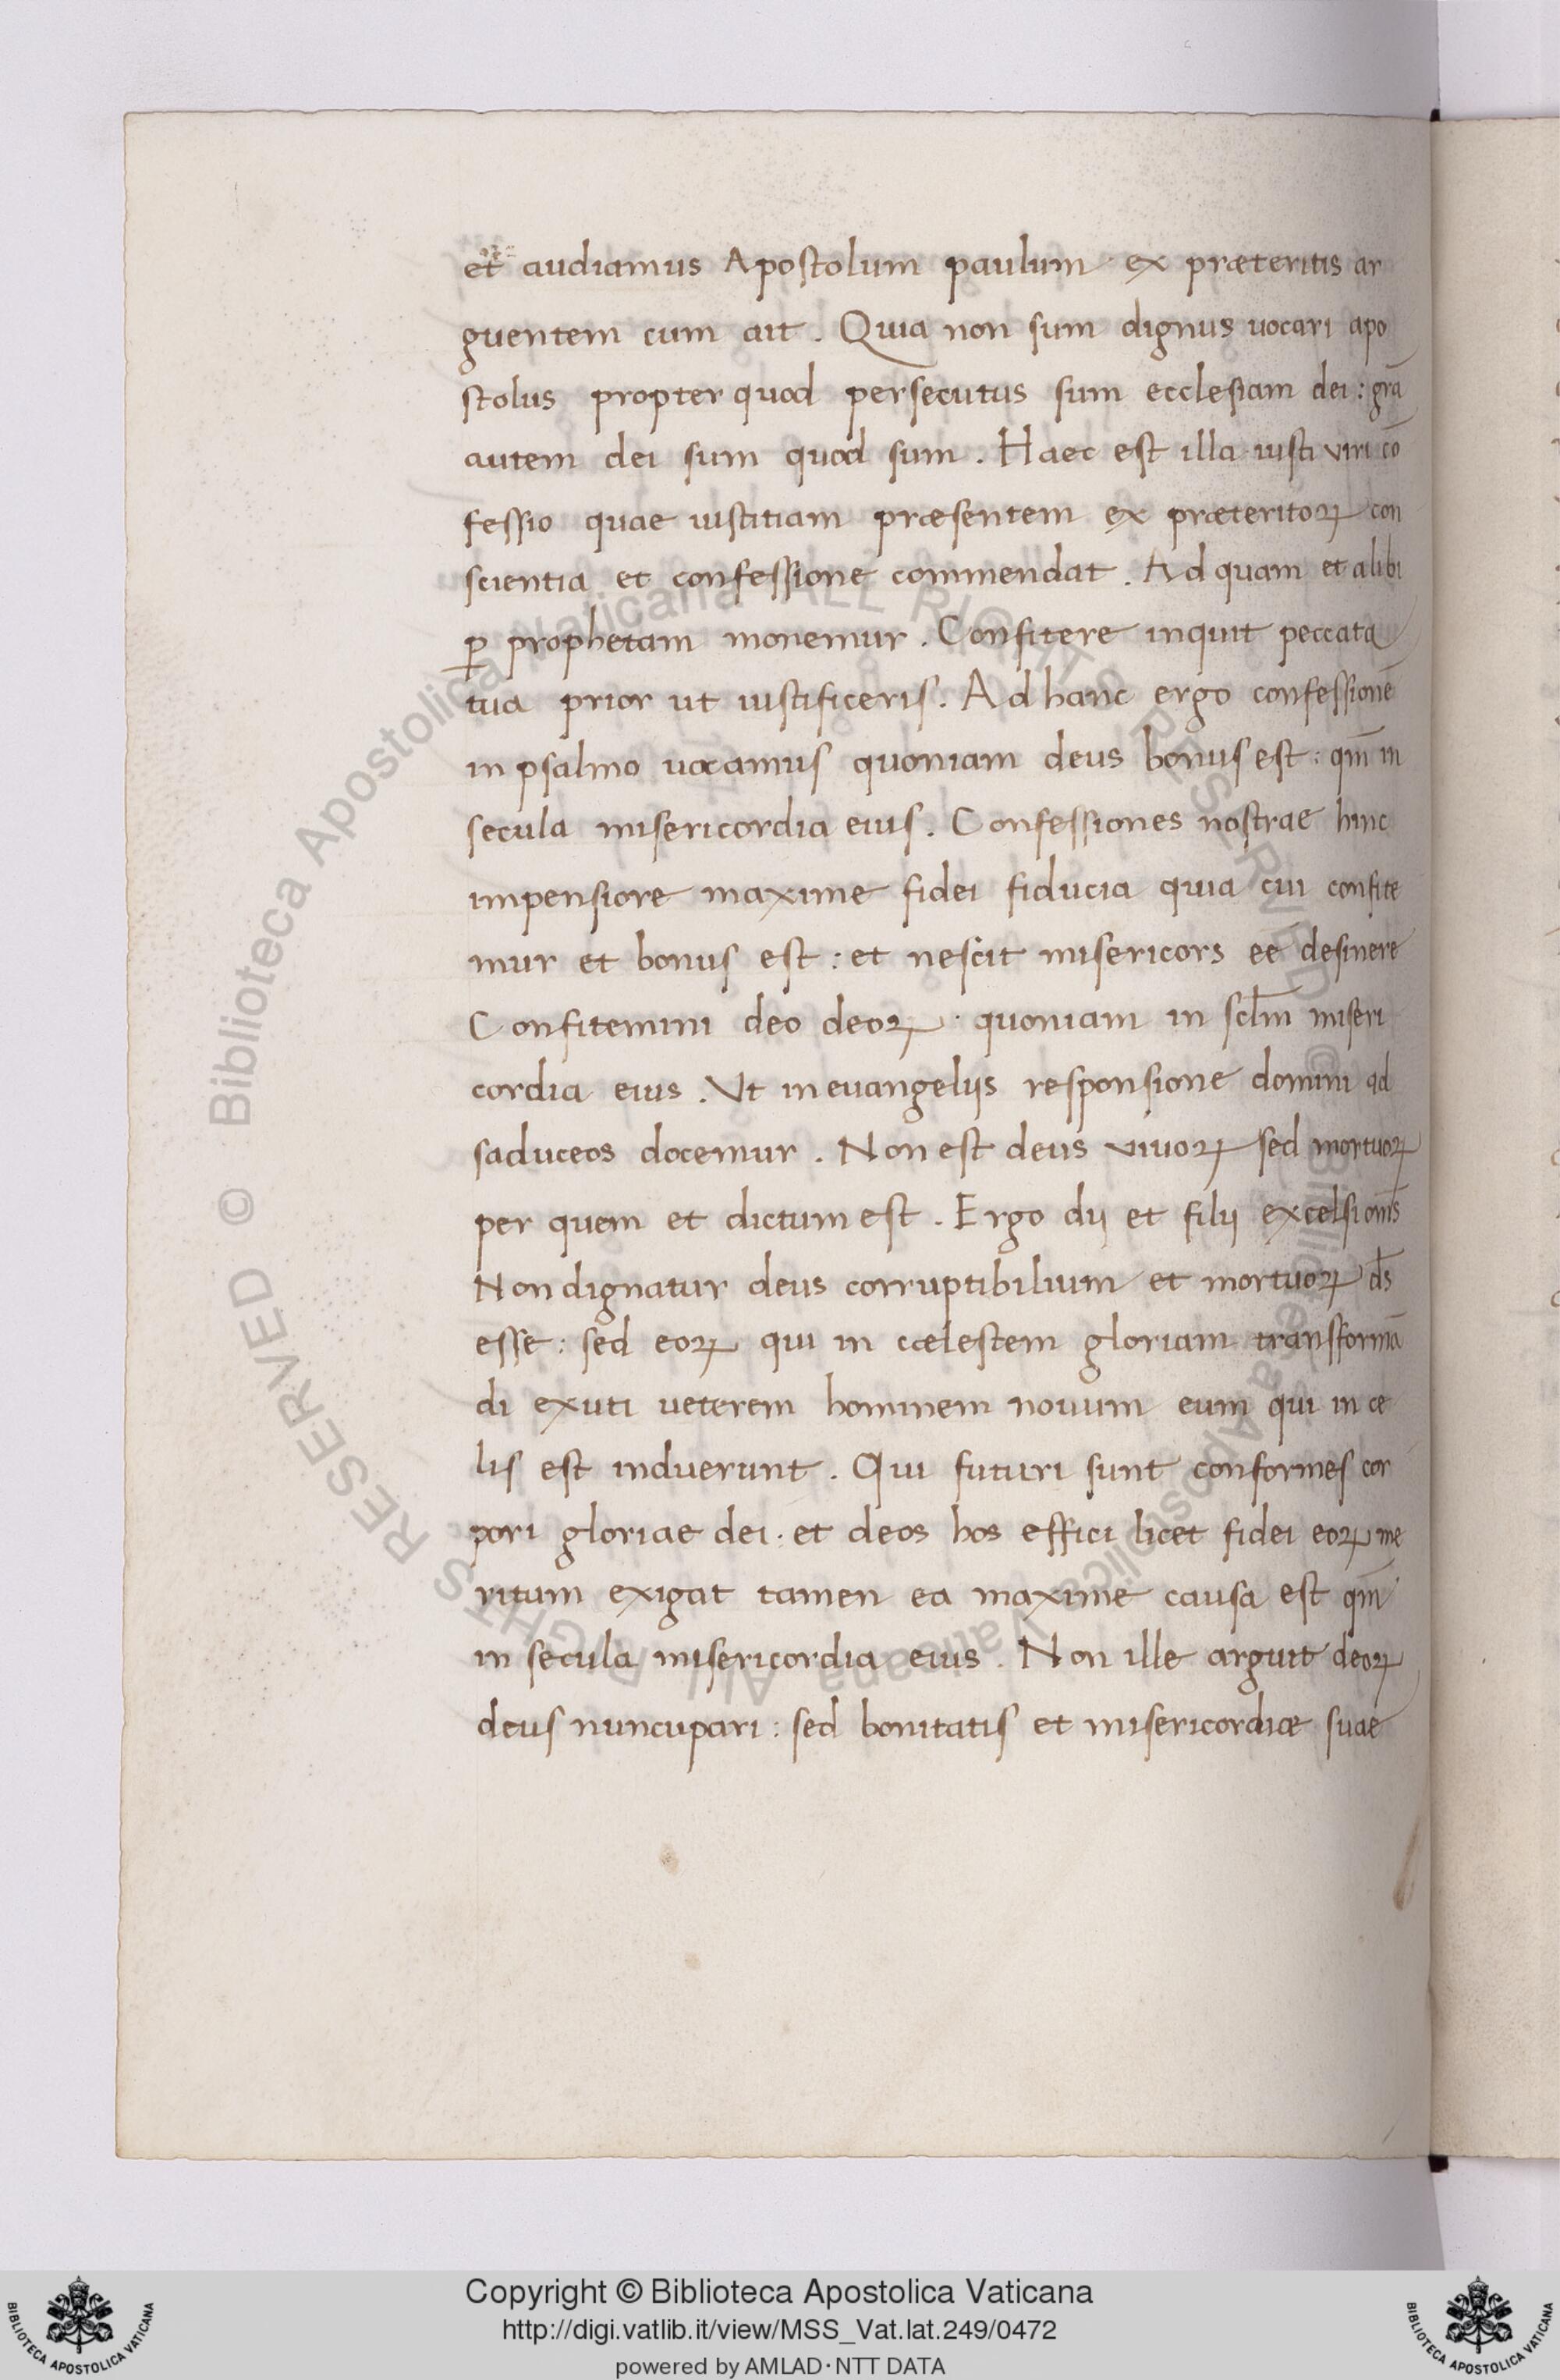 et audiamus Apostolum paulum ex præteritis ar
guentem cum ait . Quia non sum dignus uocari apo
stolus propter quod persecutus sum ecclesiam dei : grã
autem dei sum quod sum . Haec est illa iusti viri cõ
fessio quae iustitiam præsentem ex præteritoꝝ con
scientia et confessione commendat . Ad quam et alibi
ꝑ prophetam monemur . Confitere inquit peccata
tua prior ut iustificeris . Ad hanc ergo confessionẽ
in psalmo uocamus quoniam deus bonus est : qm̃ in
secula misericordia eius . Confessiones nostrae hinc
impensiore maxime fidei fiducia quia cui confite
mur et bonus est : et nescit misericors eẽ desinere
Confitemini deo deoꝝ . quoniam in sclm̃ miseri
cordia eius . Vt in euangeliis responsione domini ad
saduceos docemur . Non est deus viuoꝝ sed mortuoꝝ
per quem et dictum est . Ergo dij et filij excelsi oms̃
Non dignatur deus corruptibilium et mortuoꝝ ds̃
esse : sed eoꝝ qui in cælestem gloriam transformã
di exuti ueterem hominem nouum eum qui in ce
lis est induerunt . Qui futuri sunt conformes cor
pori gloriae dei . et deos hos effici licet fidei eoꝝ me
ritum exigat tamen ea maxime causa est qm̃
in secula misericordia eius . Non ille arguit deoꝝ
deus nuncupari : sed bonitatis et misericordiæ suae
© Biblioteca Apostolica Vaticana ALL RIGHTS RESERVED © Biblioteca Apostolica Vaticana ALL RIGHTS RESERVED
Copyright © Biblioteca Apostolica Vaticana
http://digi.vatlib.it/view/MSS_Vat.lat.249/0472
powered by AMLAD·NTT DATA
BIBLIOTECA APOSTOLICA VATICANA
BIBLIOTECA APOSTOLICA VATICANA